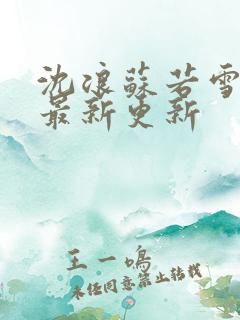 沈浪蘇若雪
最新更新
王一鳴
未經同意禁止轉載